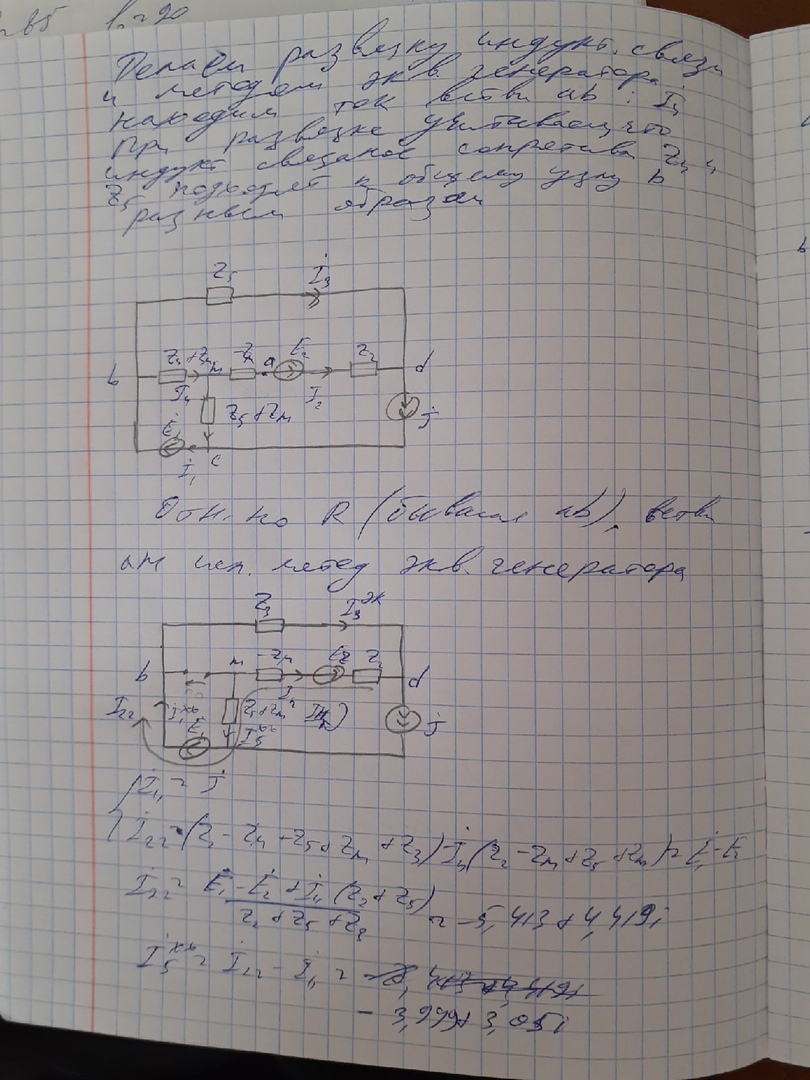 Делаем развязку индукт. связи
и методом экв. генератора
находим ток ветви ab : I4
При развязке учитываем, что
индукт связаное сопротив Z4 и
Z5 подходят к общему узлу b
разным образом
Z3 İ3
b Z4+Zм м -Zм a Ė2 Z2 d
İ4 Z5+Zм İ2 J̇
Ė1
İ1 c
Отн-но R (бывшая ab), ветви
ам исп. метод экв. генератора
Z3 İ3 эк
b м -Zм Ė2 Z2 d
I22 İ1 хх Z5+Zм I11 J̇
Ė1 İ5 хх
İ11 = J̇
İ22 (Z2 - Zм + Z5 + Zм + Z3) - İ11 (Z2 - Zм + Z5 + Zм) = Ė1 - Ė2
İ22 = Ė1 - Ė2 + İ11 (Z2 + Z5)
Z2 + Z5 + Z3
= -5,413 + 4,419i
İ5 хх = İ22 - İ11 =
- 3,999 + 3,05i